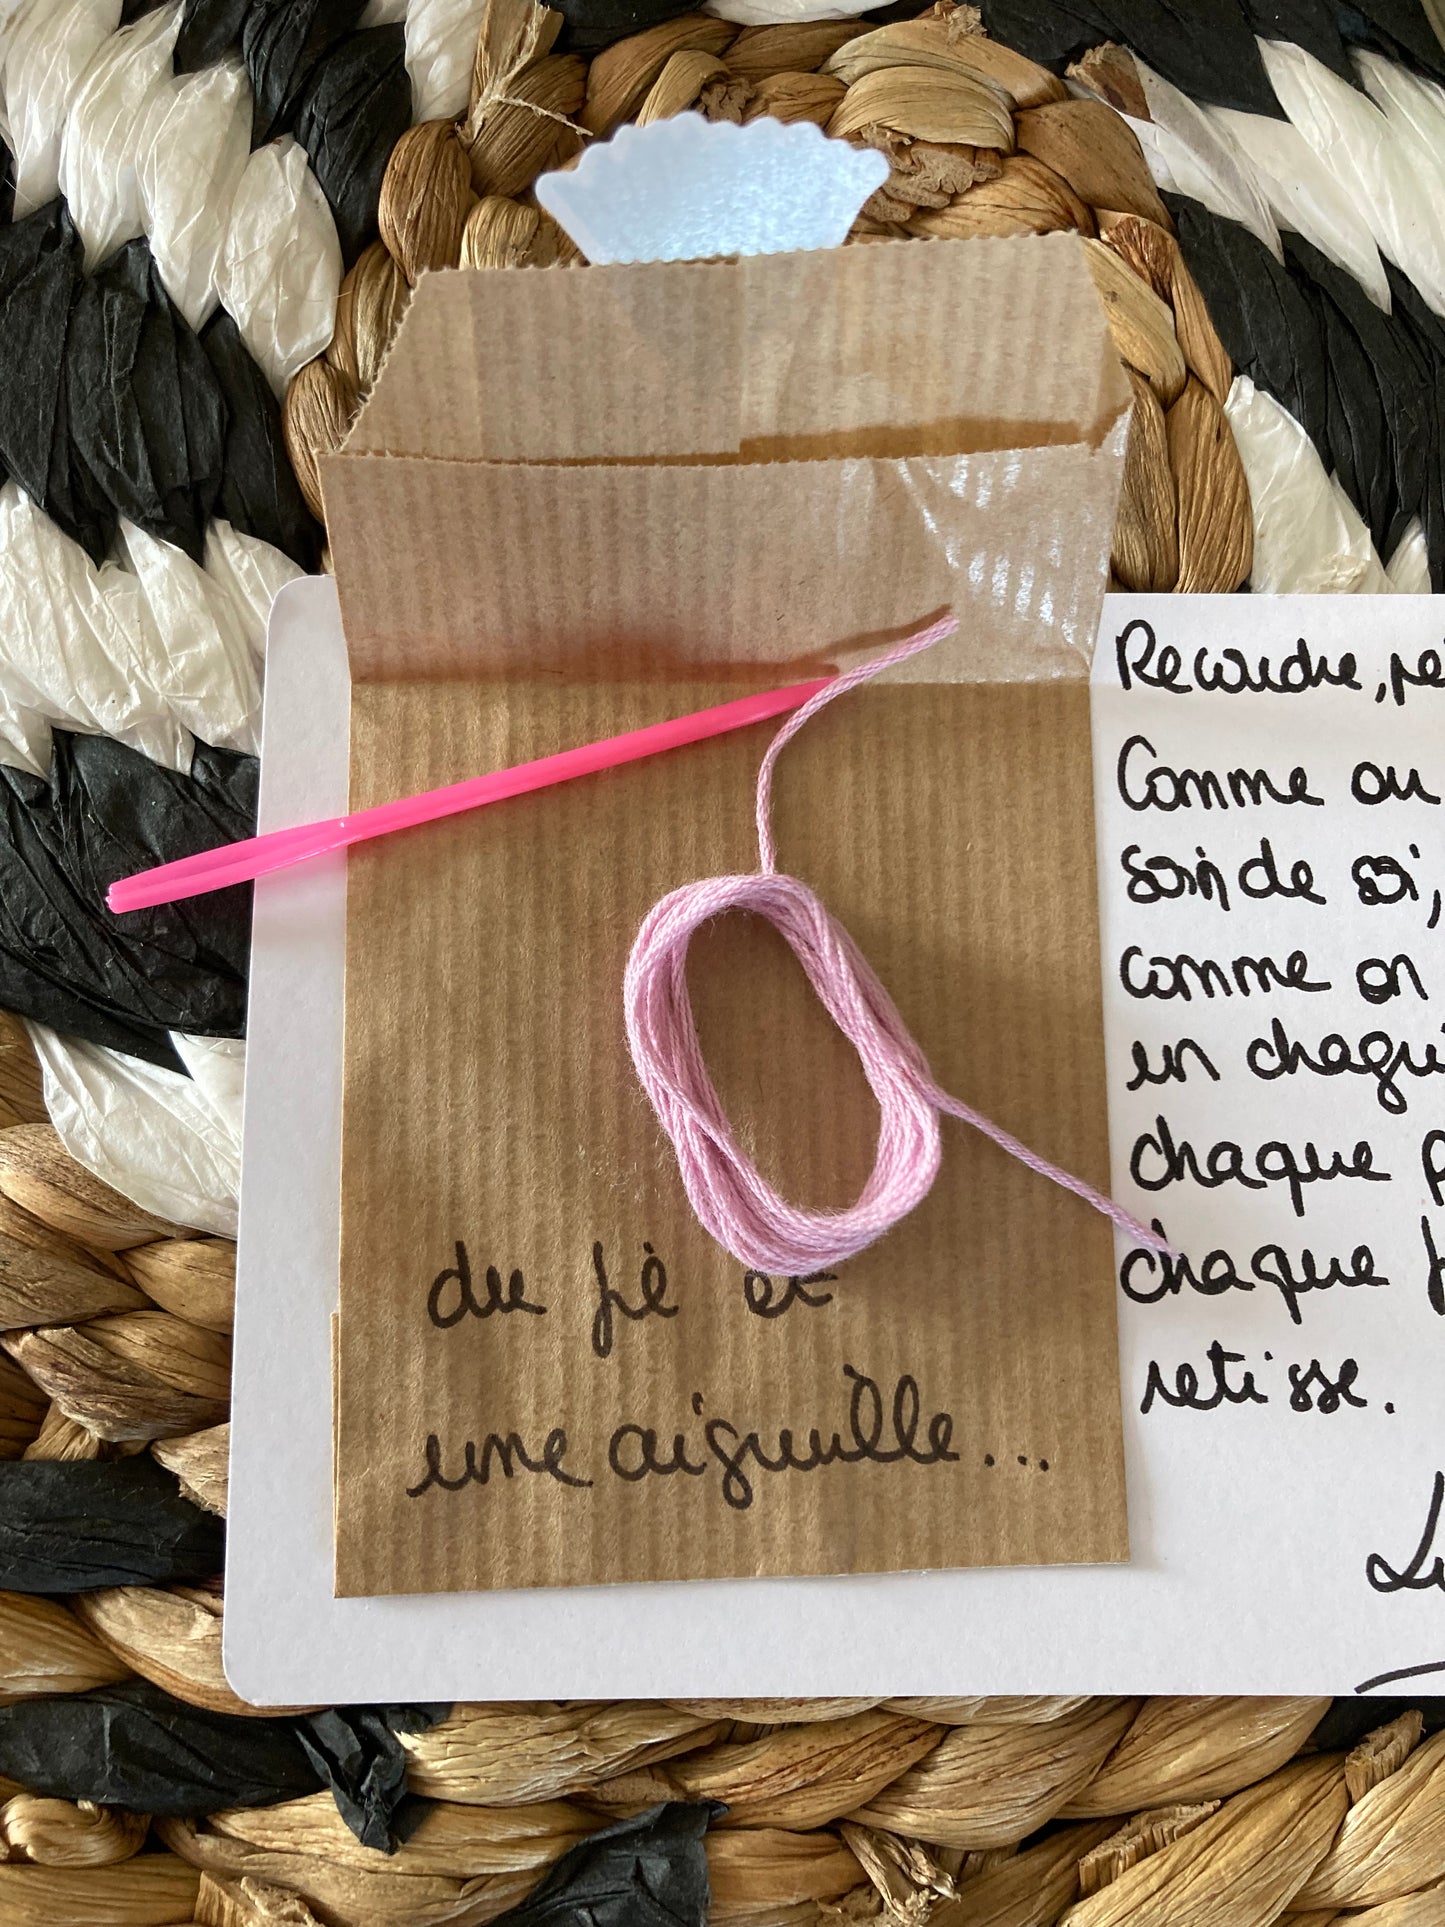 du fil et
une aiguille...
Recoudre,
Comme on
soin de soi,
comme on
en chaqu
chaque
chaque
retisse.